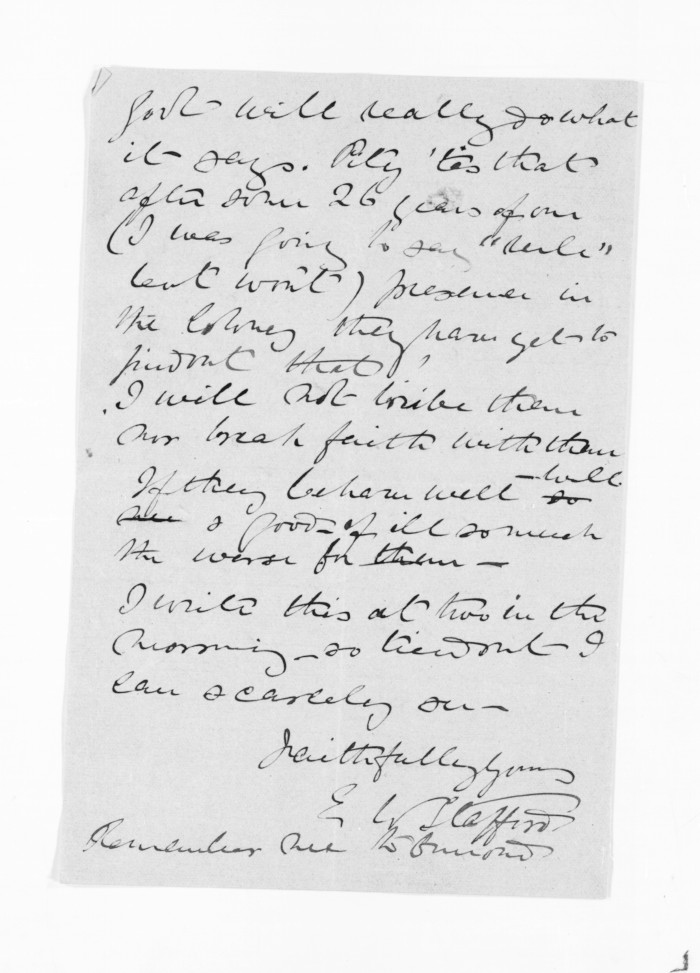 Govt will really do what
it says. Pity 'tis that
after some 26 years of our
(I was going to say "rule"
but won't) presence in
the Colony they have yet to
find out that!
I will not bribe them
nor break faith with them
If they behave well - well
so
& good - if ill so much
the worse for them -
I write this at two in the
morning - so tired out I
can scarcely see -
Faithfully yours
E W Stafford
Remember me to Ormond